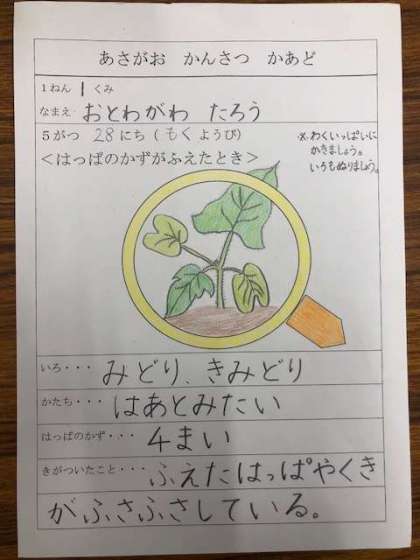 あさがお かんさつ かあど
1ねん 1 くみ
なまえ おとわがわ たろう
5がつ 28にち(もくようび)
※わくいっぱいに
かきましょう。
いろもぬりましょう。
<はっぱのかずがふえたとき>
いろ・・・ みどり、きみどり
かたち・・・ はあとみたい
はっぱのかず・・・ 4まい
きがついたこと・・・ ふえたはっぱやくき
がふさふさしている。